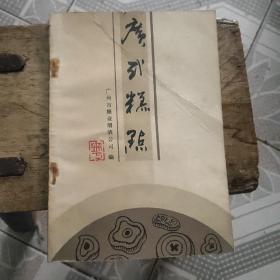 廣式糕點
广州市糖业烟酒公司 编